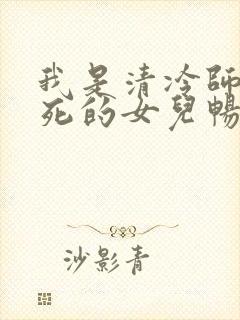 我是清冷師
死的女兒暢
沙影青